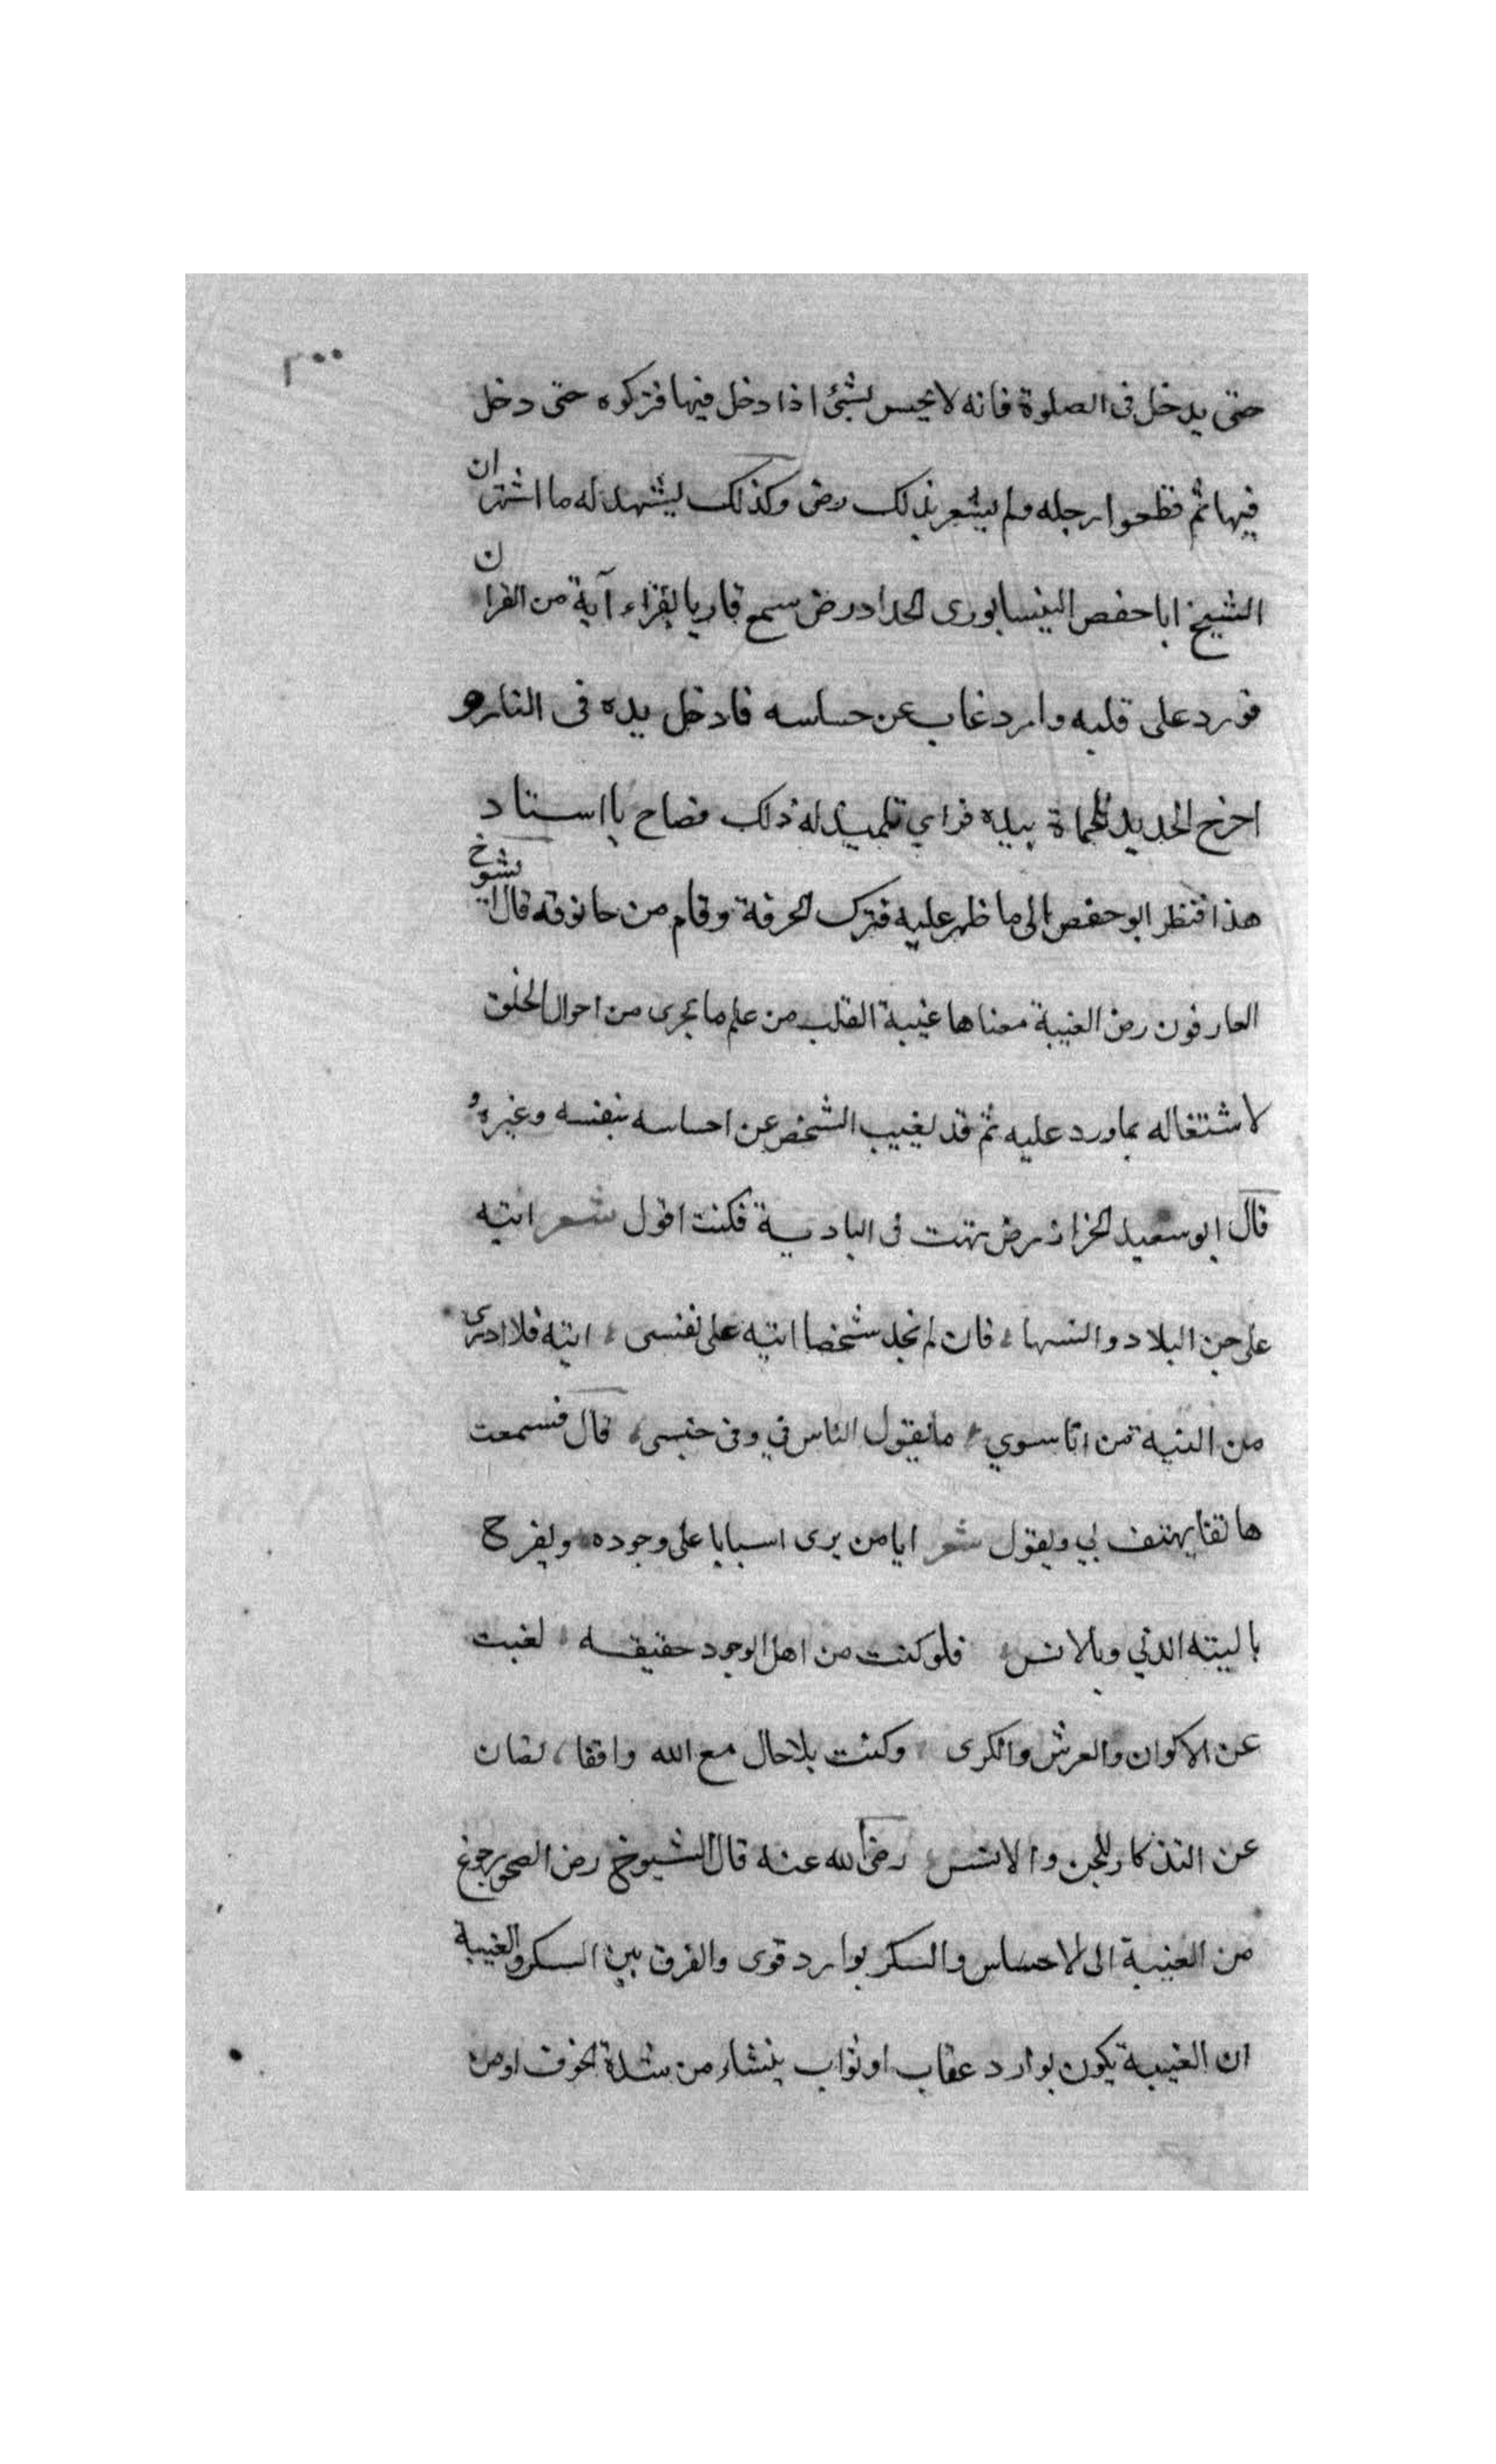 ٣٠٠
حتى يدخل فى الصلوة فانه لا يحس بشئ اذا دخل فيها فتركوه حتى دخل
فيها ثم قطعوا رجله ولم يشعر بذلك رض وكذلك يشهد له ما اشتهر ان
الشيخ ابا حفص النيسابورى الحداد رض سمع قاريا يقراء آية من القران
فورد على قلبه وارد غاب عن حساسه فادخل يده فى النار و
اخرج الحديد المحماة بيده فراي تلميذ له ذلك فصاح يا استاد
هذا فنظر ابو حفص الى ما ظهر عليه فترك الحرفة وقام من حانوته قال الشيوخ
العارفون رض الغيبة معناها غيبة القلب من علم ما يجرى من احوال الخلق
لاشتغاله بما ورد عليه ثم قد يغيب الشخص عن احساسه بنفسه وغيره و
قال ابو سعيد الخراز رض تهت فى البادية فكنت اقول شعر اتيه
على جن البلاد وانسها، فان لم نجد شخصا اتيه على نفسى، اتيه فلا ادرى
من التيه من انا سوي، ما يقول الناس في وفى جنسى، قال فسمعت
هاتفا يهتف بي ويقول شعر ايا من يرى اسبابا على وجوده ويفرح
بالتيه الدني وبالانس، فلو كنت من اهل الوجود حقيقه، لغبت
عن الاكوان والعرش والكرى، وكنت بلا حال مع الله واقفا، تصان
عن التذكار للجن والانس، رضى الله عنه قال الشيوخ رض الصحو رجوع
من الغيبة الى الاحساس والسكر بوارد قوى والفرق بين السكر والغيبة
ان الغيبة يكون بوارد عقاب او ثواب ينشاء من شدة الخوف او من